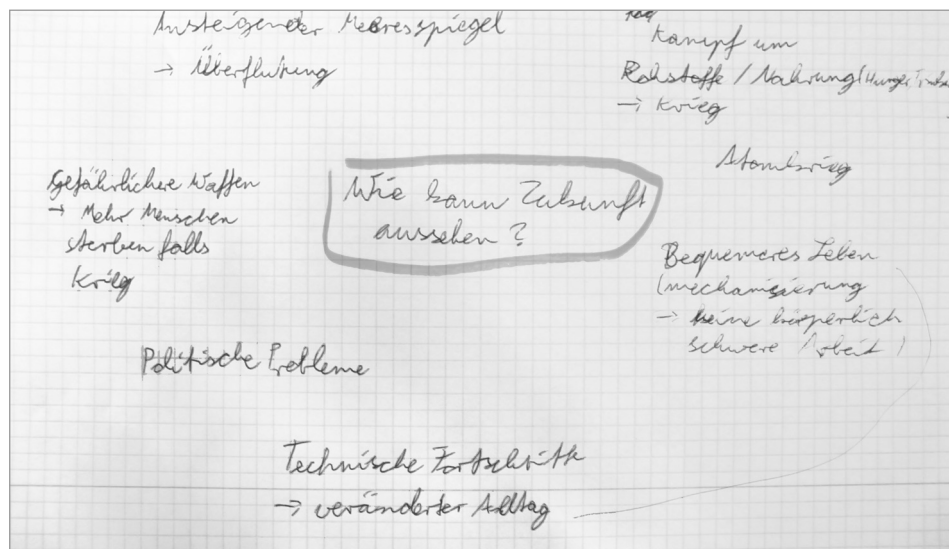 Ansteigender Meeresspiegel
→ Überflutung
Kampf um
Rohstoffe / Nahrung (Hunger
→ Krieg
Atomkrieg
gefährlichere Waffen
→ Mehr Menschen
sterben falls
Krieg
Wie kann Zukunft
aussehen?
Bequemeres Leben
(mechanisierung
→ keine körperlich
schwere Arbeit)
Politische Probleme
Technische Fortschritte
→ veränderter Alltag